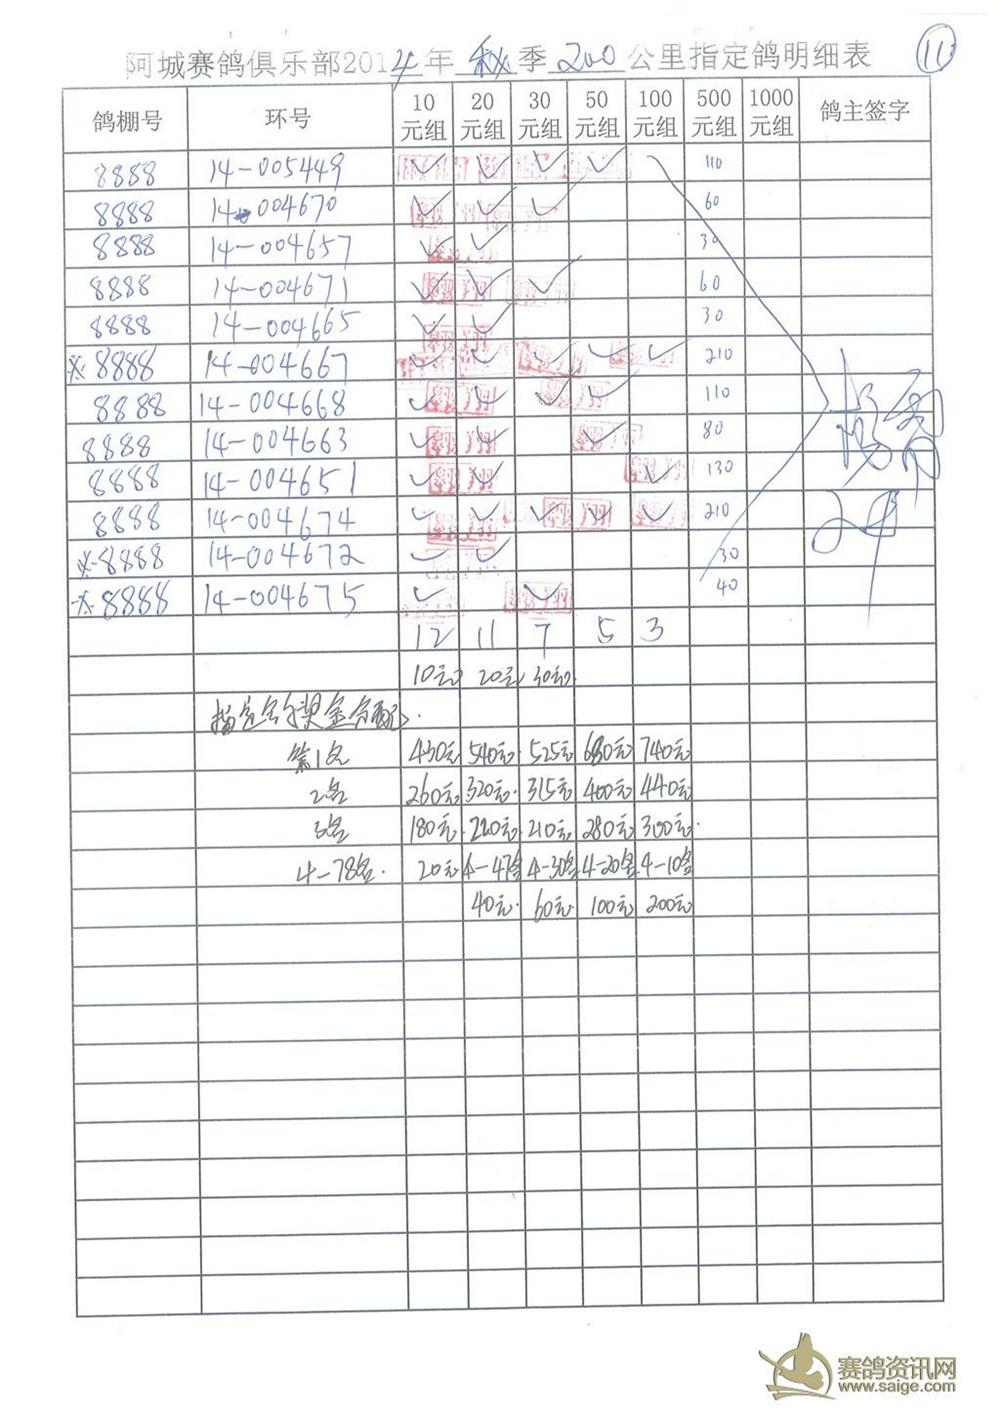 阿城赛鸽俱乐部2014年 秋 季 200 公里指定鸽明细表 11
鸽棚号 环号 10元组 20元组 30元组 50元组 100元组 500元组 1000元组 鸽主签字
8888 14-005449 ✓ ✓ ✓ ✓ 110
8888 14-004670 ✓ ✓ ✓ 60
8888 14-004657 ✓ ✓ 30
8888 14-004671 ✓ ✓ ✓ 60
8888 14-004665 ✓ ✓ 30
※8888 14-004667 ✓ ✓ ✓ ✓ ✓ 210
8888 14-004668 ✓ ✓ ✓ ✓ 110
8888 14-004663 ✓ ✓ ✓ 80
8888 14-004651 ✓ ✓ ✓ 130
8888 14-004674 ✓ ✓ ✓ ✓ ✓ 210
※8888 14-004672 ✓ ✓ 30
※8888 14-004675 ✓ ✓ 40
12 11 7 5 3
10元 20元 30元
指定鸽奖金分配
第1名 430元 540元 525元 680元 740元
2名 260元 320元 315元 400元 440元
3名 180元 220元 210元 280元 300元
4-78名 20元 4-47名 4-30名 4-20名 4-10名
40元 60元 100元 200元
赛鸽资讯网
www.saige.com